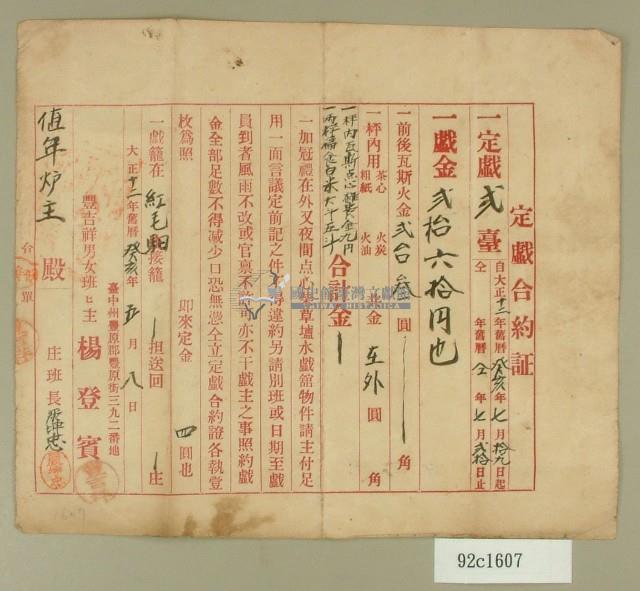 定戲合約証
一定戲 貳 臺 自大正十二年舊曆癸亥年七月拾九日起
仝 年舊曆仝年七月貳拾日止
一戲金 貳拾六拾円也
一前後瓦斯火金貳台叁圓 角
一枰內用茶心粗紙火炭火油 金 在外 圓 角
一枰內瓦斯点心雜費金九円
合計金
一加冠禮在外又夜間点 草壇水戲舘物件請主付足
用一面言議定前記之件 違約另請別班或日期至戲
員到者風雨不改或官禀不許可亦不干戲主之事照約戲
金全部足數不得減少口恐無憑仝立定戲合約證各執壹
枚為照 即來定金 四 圓也
一戲籠在 紅毛 接籠 担送回 庄
大正十二年舊曆癸亥年五月八日
臺中州豐原郡豐原街三九二番地
豐吉祥男女班ヒ主 楊登賓
值年炉主 殿 庄班長
合單
國史館臺灣文獻館
TAIWAN HISTORICA
92c1607